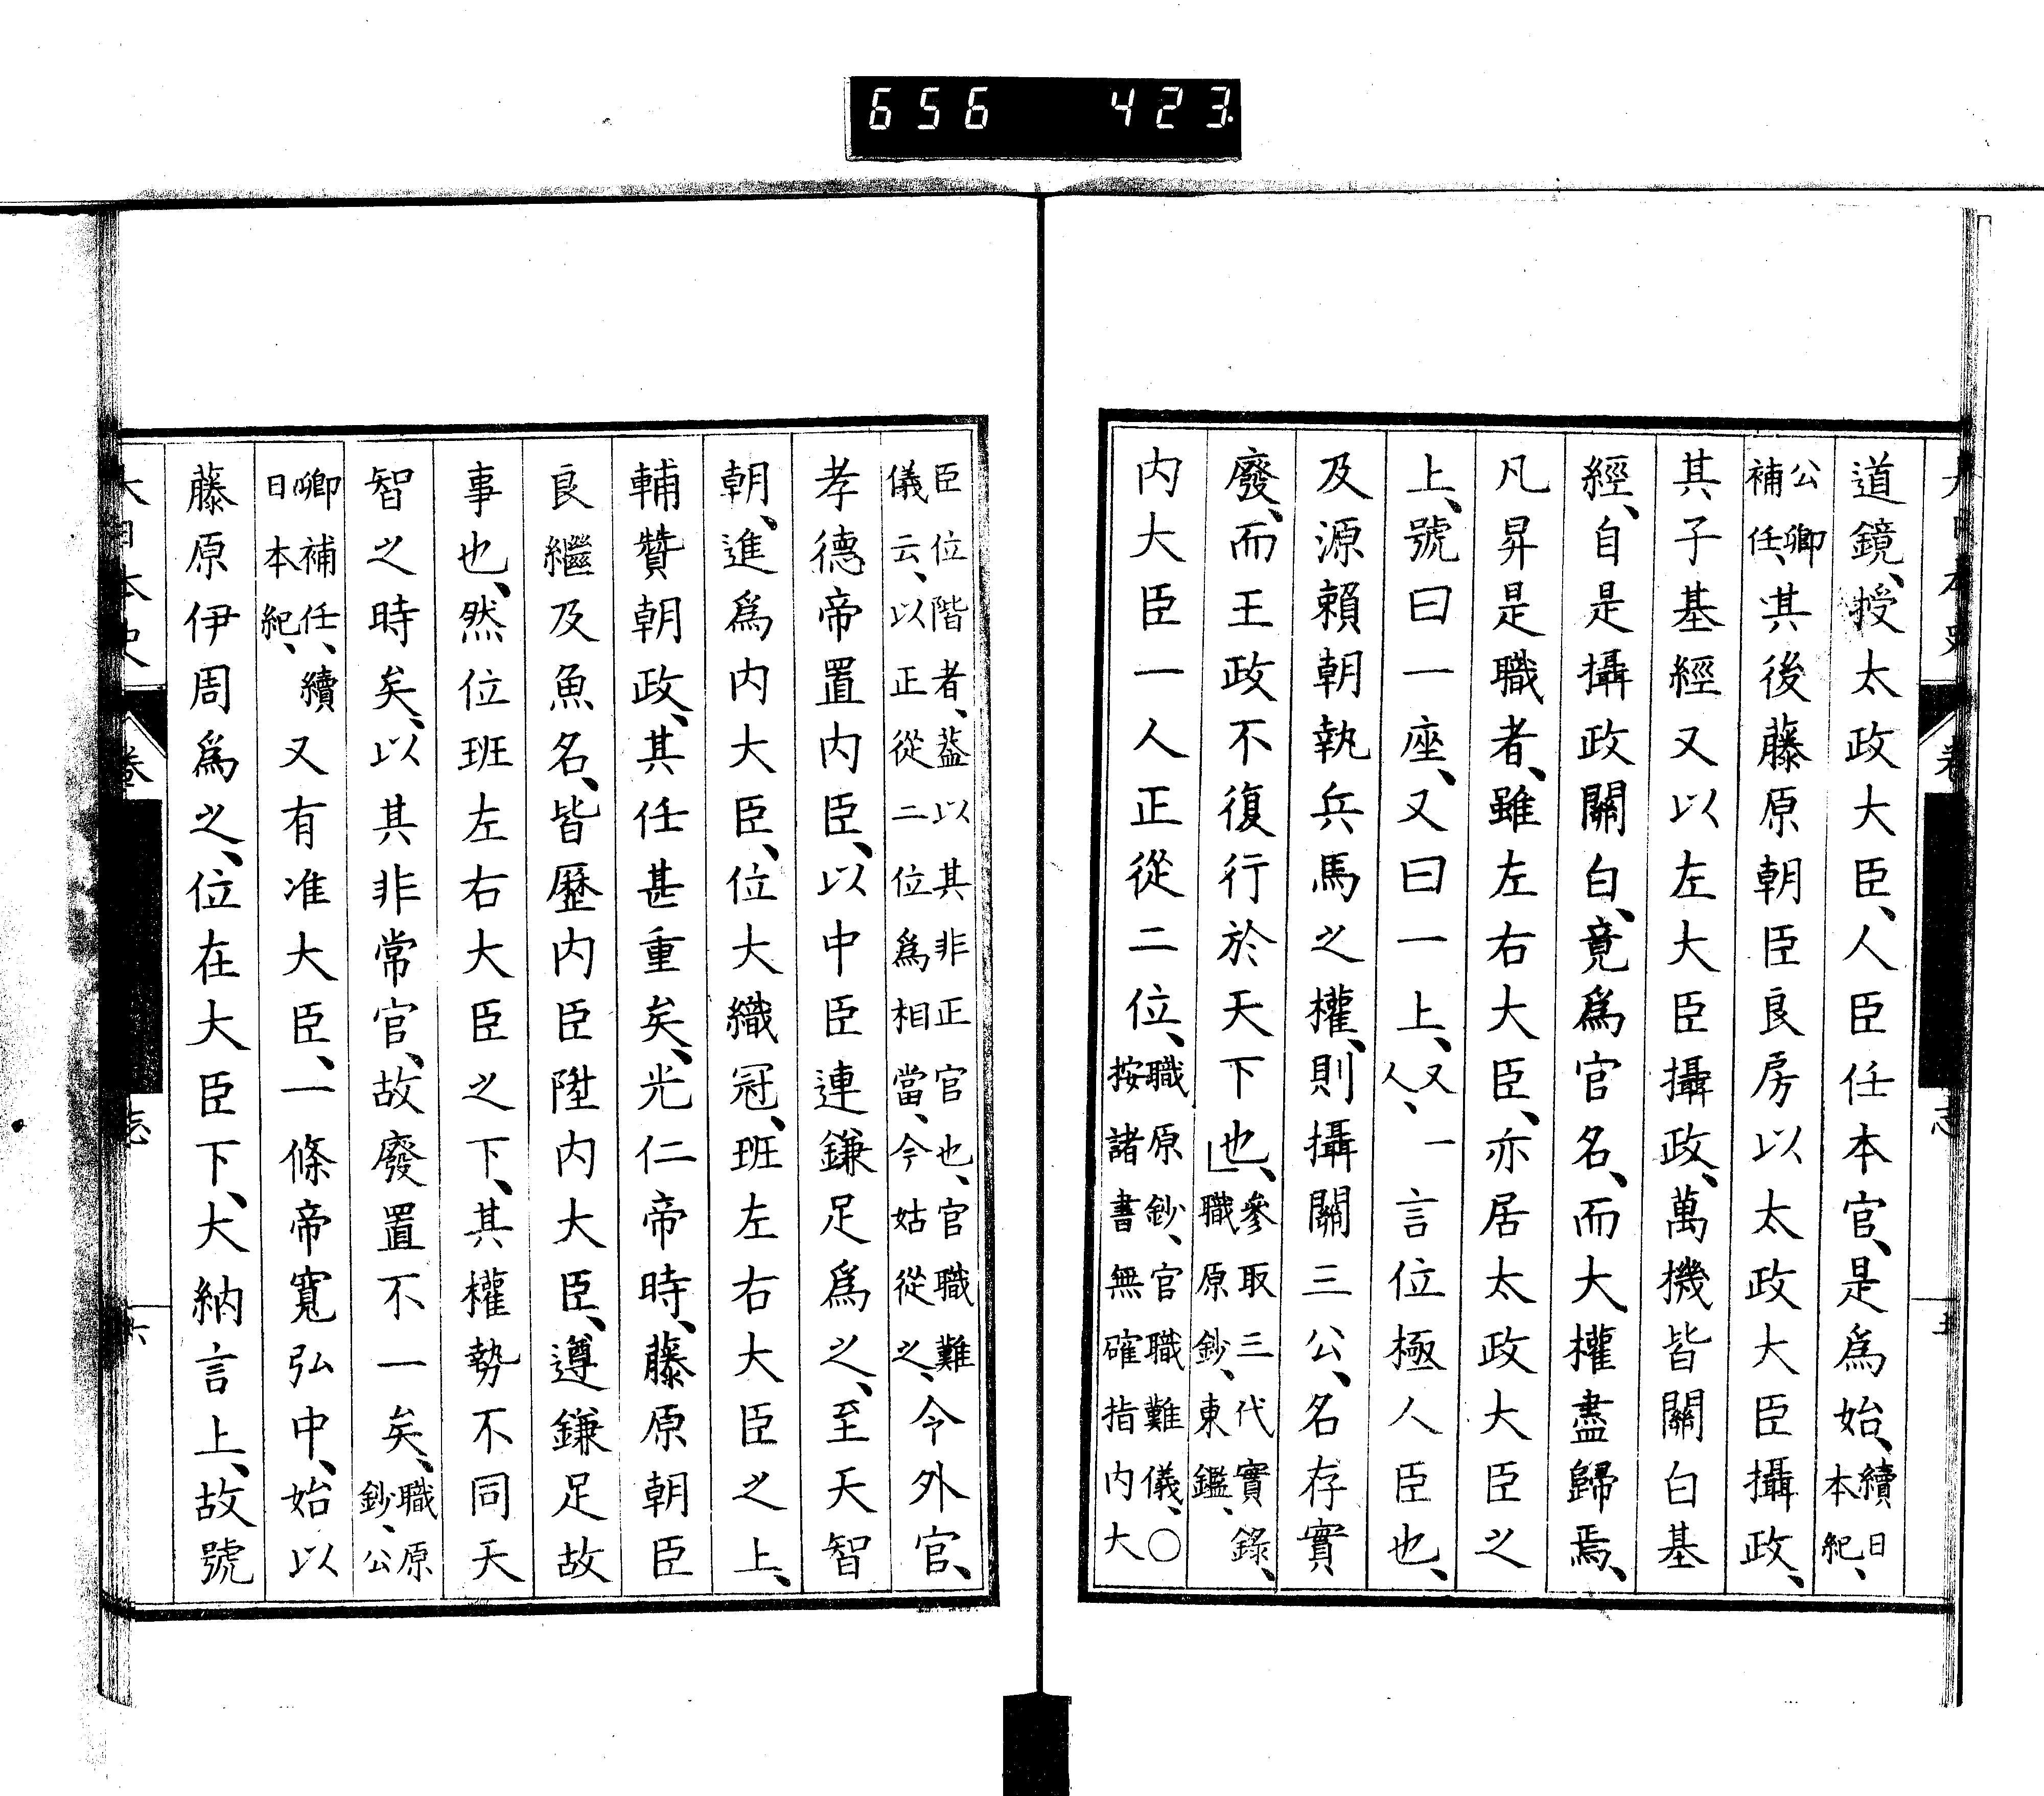 656 423.
道鏡、授太政大臣、人臣任本官、是爲始、續日本紀、
公卿補任、其後藤原朝臣良房以太政大臣攝政、
其子基經又以左大臣攝政、萬機皆關白基
經、自是攝政關白、竟爲官名、而大權盡歸焉、
凡昇是職者、雖左右大臣、亦居太政大臣之
上、號曰一座、又曰一上、又一人、言位極人臣也、
及源賴朝執兵馬之權、則攝關三公、名存實
廢、而王政不復行於天下也、參取三代實錄、職原鈔、東鑑、
內大臣一人正從二位、職原鈔、官職難儀、○按諸書無確指內大
臣位階者、蓋以其非正官也、官職難儀云、以正從二位爲相當、今姑從之、令外官、
孝德帝置內臣、以中臣連鎌足爲之、至天智
朝、進爲內大臣、位大織冠、班左右大臣之上、
輔贊朝政、其任甚重矣、光仁帝時、藤原朝臣
良繼及魚名、皆歷內臣陞內大臣、遵鎌足故
事也、然位班左右大臣之下、其權勢不同天
智之時矣、以其非常官、故廢置不一矣、職原鈔、公
卿補任、續日本紀、又有准大臣、一條帝寬弘中、始以
藤原伊周爲之、位在大臣下、大納言上、故號
大日本史 卷 志 六